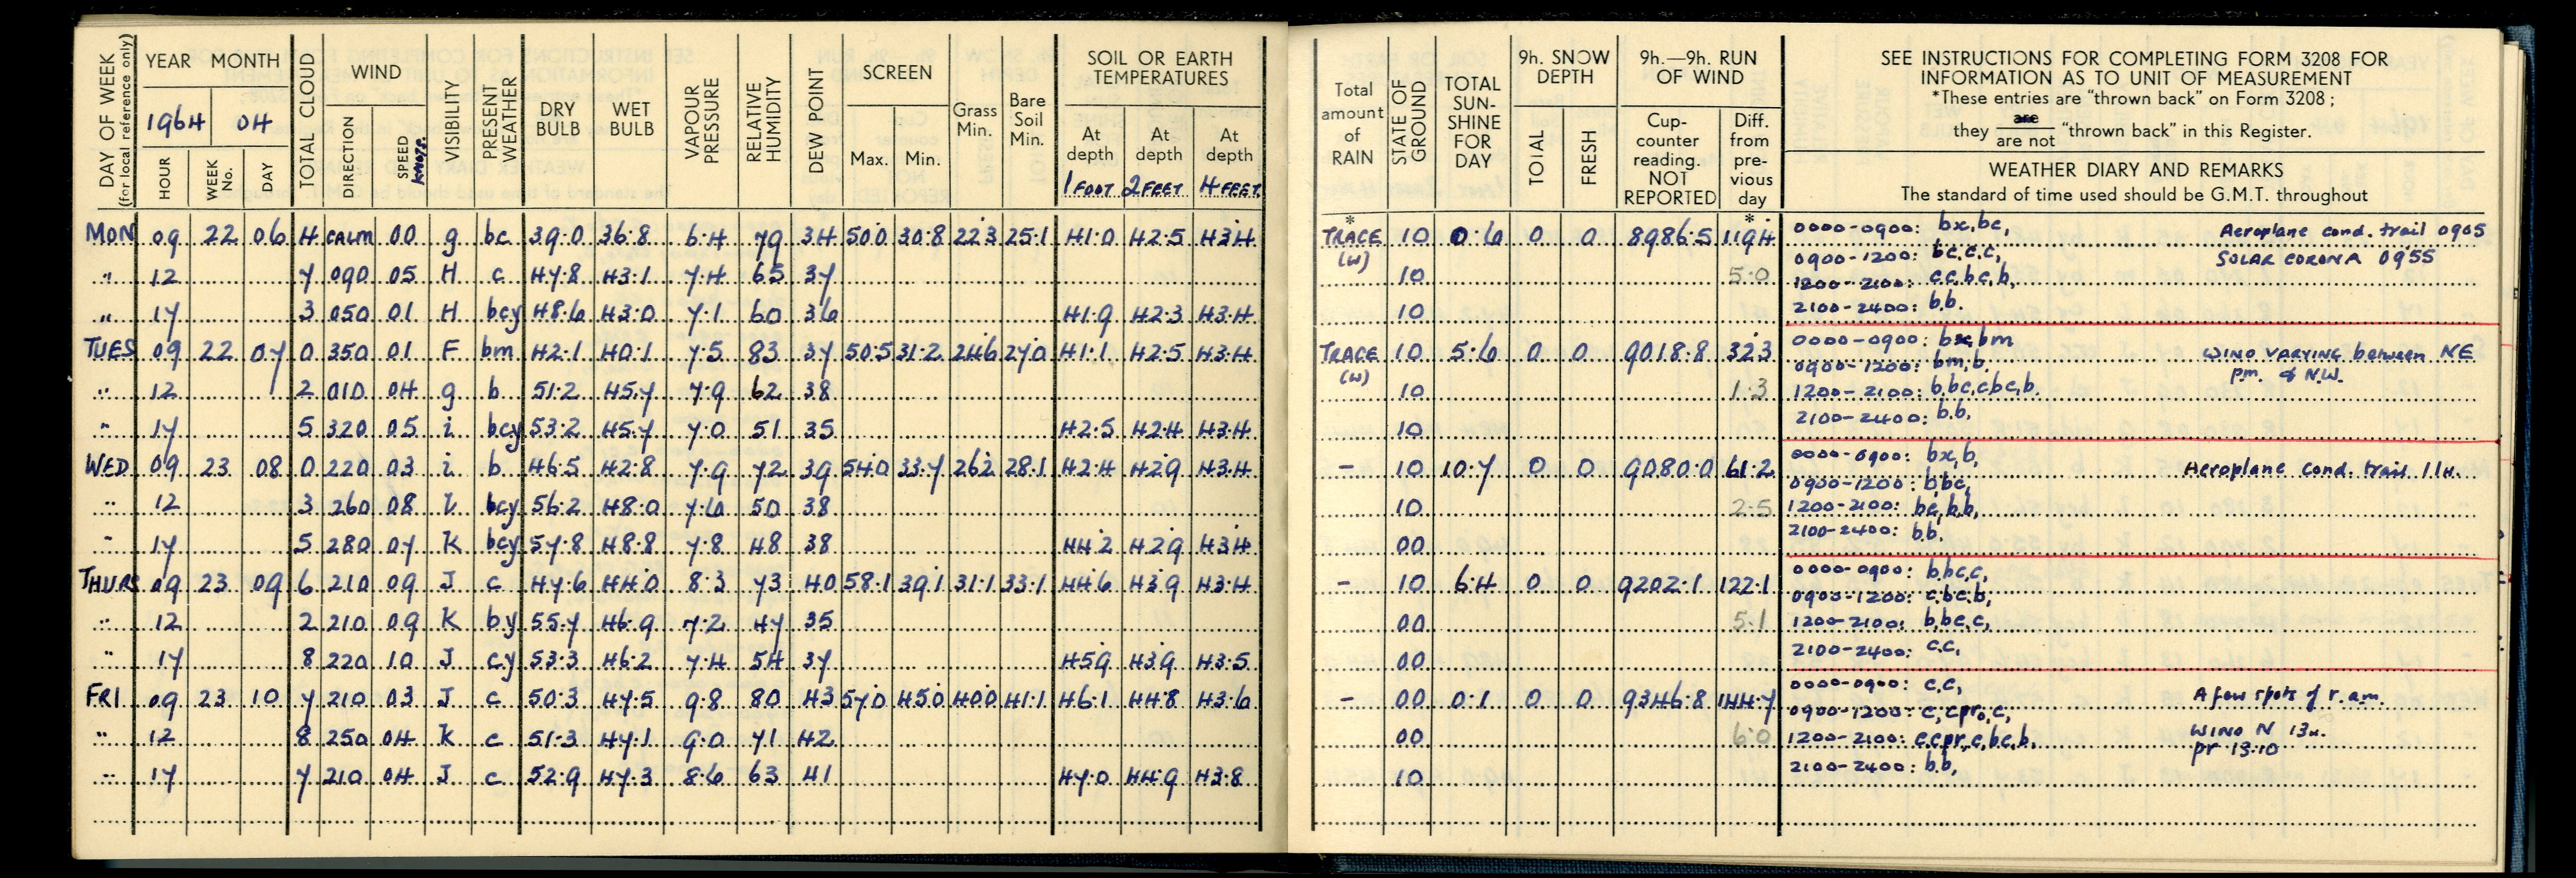 DAY OF WEEK (for local reference only)
YEAR MONTH
1964 04
HOUR WEEK No. DAY
TOTAL CLOUD
WIND
DIRECTION SPEED knots.
VISIBILITY
PRESENT WEATHER
DRY BULB
WET BULB
VAPOUR PRESSURE
RELATIVE HUMIDITY
DEW POINT
SCREEN
Max. Min.
Grass Min.
Bare Soil Min.
SOIL OR EARTH TEMPERATURES
At depth 1 FOOT
At depth 2 FEET
At depth 4 FEET
MON 09 22 06 4 CALM 00 g bc 39.0 36.8 6.4 79 34 50.0 30.8 22.3 25.1 41.0 42.5 43.4
" 12 7 090 05 H c 47.8 43.1 7.4 65 37
" 17 3 050 01 H bcy 48.6 43.0 7.1 60 36 41.9 42.3 43.4
TUES 09 22 07 0 350 01 F bm 42.1 40.1 7.5 83 37 50.5 31.2 24.6 27.0 41.1 42.5 43.4
" 12 2 010 04 g b 51.2 45.7 7.9 62 38
" 17 5 320 05 i bcy 53.2 45.7 7.0 51 35 42.5 42.4 43.4
WED 09 23 08 0 220 03 i b 46.5 42.8 7.9 72 39 54.0 33.7 26.2 28.1 42.4 42.9 43.4
" 12 3 260 08 bcy 56.2 48.0 7.6 50 38
" 17 5 280 07 K bcy 57.8 48.8 7.8 48 38 44.2 42.9 43.4
THURS 09 23 09 6 210 09 J c 47.6 44.0 8.3 73 40 58.1 39.1 31.1 33.1 44.6 43.9 43.4
" 12 2 210 09 K by 55.7 46.9 7.2 47 35
" 17 8 220 10 J cy 53.3 46.2 7.4 54 37 45.9 43.9 43.5
FRI 09 23 10 7 210 03 J c 50.3 47.5 9.8 80 43 57.0 45.0 40.0 41.1 46.1 44.8 43.6
" 12 8 250 04 K c 51.3 47.1 9.0 71 42
" 17 7 210 04 J c 52.9 47.3 8.6 63 41 47.0 44.9 43.8
Total amount of RAIN
STATE OF GROUND
TOTAL SUN-SHINE FOR DAY
9h. SNOW DEPTH
TOTAL FRESH
9h.—9h. RUN OF WIND
Cup-counter reading. NOT REPORTED
Diff. from pre-vious day
SEE INSTRUCTIONS FOR COMPLETING FORM 3208 FOR
INFORMATION AS TO UNIT OF MEASUREMENT
*These entries are "thrown back" on Form 3208 ;
they are / are not "thrown back" in this Register.
WEATHER DIARY AND REMARKS
The standard of time used should be G.M.T. throughout
* *
TRACE (w) 10 0.6 0 0 8986.5 119.4 0000-0900: bx,bc, Aeroplane cond. trail 0905
0900-1200: bc,c,c, SOLAR CORONA 0955
10 5.0 1200-2100: c,c,bc,b,
10 2100-2400: b.b.
TRACE (w) 10 5.6 0 0 9018.8 32.3 0000-0900: bx,bm WIND VARYING between NE
0900-1200: bm,b. pm. & N.W.
10 1.3 1200-2100: b,bc,cbc,b.
10 2100-2400: b.b,
- 10 10.7 0 0 9080.0 61.2 0000-0900: bx,b, Aeroplane cond. trail 11H.
0900-1200: b,bc,
10 2.5 1200-2100: bc,b,b,
00 2100-2400: b.b.
- 10 6.4 0 0 9202.1 122.1 0000-0900: b,bc,c,
0900-1200: c,bc,b,
00 5.1 1200-2100: b,bc,c,
00 2100-2400: c.c,
- 00 0.1 0 0 9346.8 144.7 0000-0900: c.c, A few spots of r. a.m.
0900-1200: c,cpr₀,c,
00 6.0 1200-2100: c,cpr,c,bc,b, WIND N 13H.
pr 13.10
10 2100-2400: b.b,